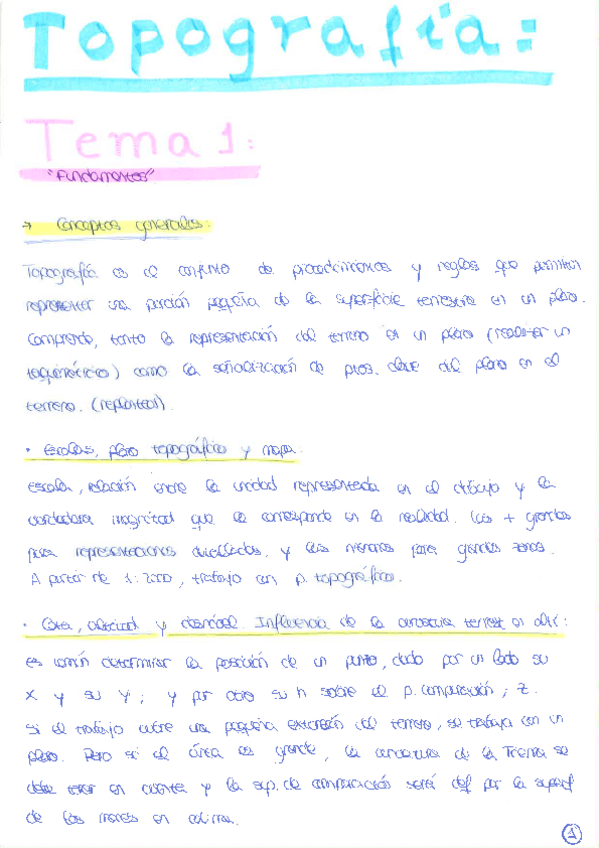 Topografía:
Tema 1:
"Fundamentos"
→ Conceptos generales:
Topografía es el conjunto de procedimientos y reglas que permiten
representar una porción pequeña de la superficie terrestre en un plano.
Comprende, tanto la representación del terreno en un plano (realizar un
taquimétrico) como la señalización de ptos. clave del plano en el
terreno. (replanteo).
· Escalas, plano topográfico y mapa:
Escala, relación entre la unidad representada en el dibujo y la
verdadera magnitud que le corresponde en la realidad. Las + grandes
para representaciones detalladas, y las menores para grandes zonas.
A partir de 1:2000, trabajo con p. topográfico.
· Cota, altitud y desnivel. Influencia de la curvatura terrest en alti:
es común determinar la posición de un punto, dado por un lado su
X y su Y; y por otro su h sobre el p. comparación; Z.
Si el trabajo cubre una pequeña extensión del terreno, se trabaja con un
plano. Pero si el área es grande, la curvatura de la Tierra se
debe tener en cuenta y la sup. de comparación será def por la superf
de los mares en calma.
1